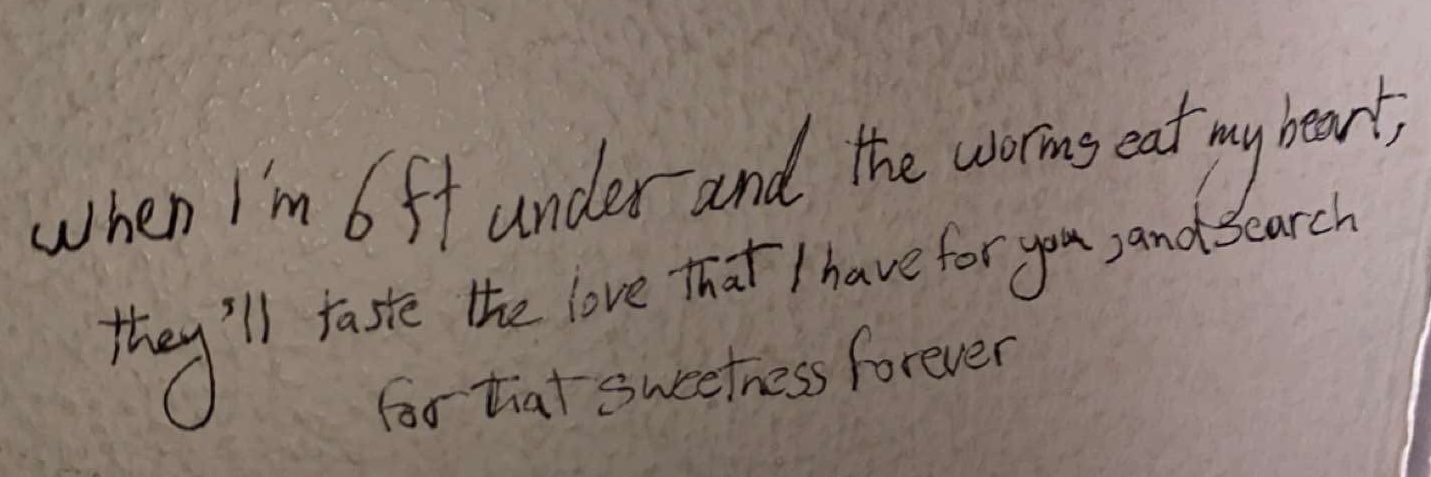 when I'm 6ft under and the worms eat my heart,
they'll taste the love that I have for you, and search
for that sweetness forever